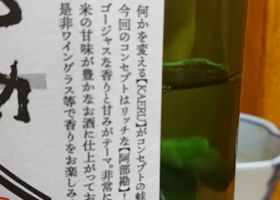 何かを変える【KAERU】がコンセプトの蛙
今回のコンセプトはリッチな【阿部勘】
ゴージャスな香りと甘みがテーマ。非常に
米の甘味が豊かなお酒に仕上がってお
是非ワイングラス等で香りをお楽しみ